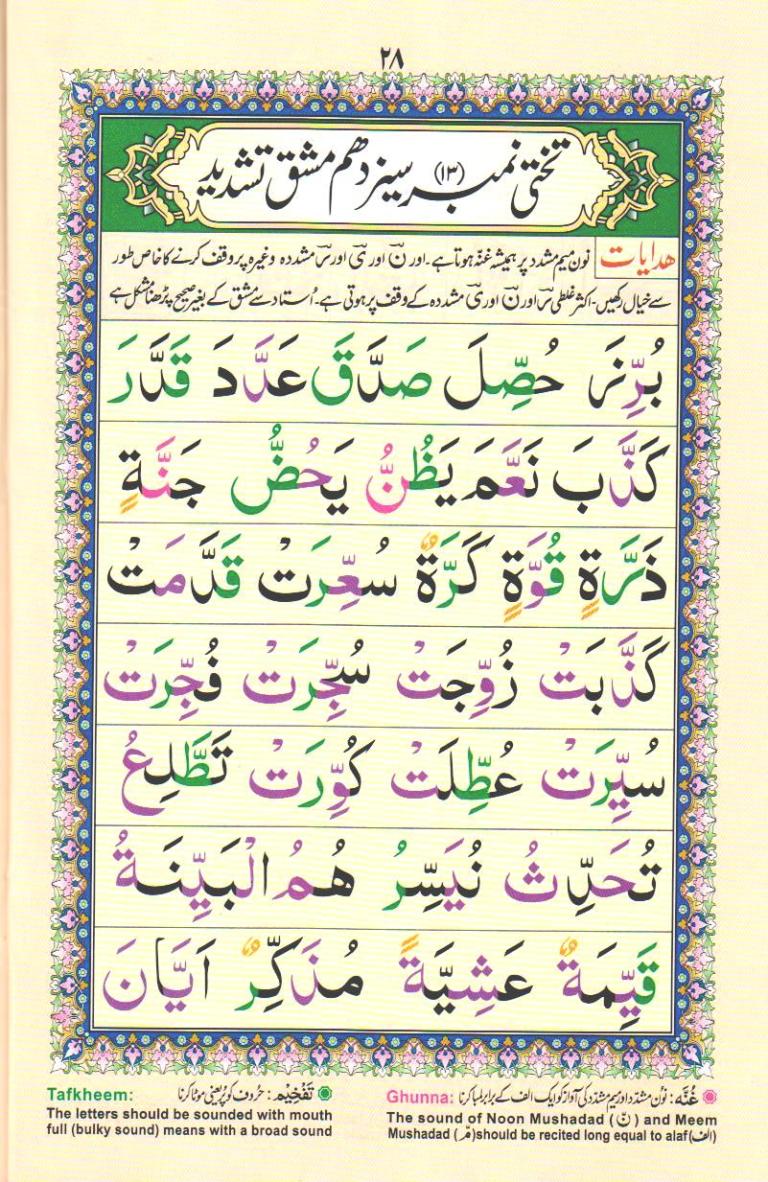 ٢٨
تختی نمبر (١٣) سیزدهم مشق تشدید
هدایات نون میم مشدد پر ہمیشہ غنّہ ہوتا ہے۔ اور نّ اور یّ اور رّ مشددہ وغیرہ پر وقف کرنے کا خاص طور
سے خیال رکھیں۔ اکثر غلطی رّ اور نّ اور یّ مشددہ کے وقف پر ہوتی ہے۔ اُستاد سے مشق کے بغیر صحیح پڑھنا مشکل ہے
بُرِّزَ حُصِّلَ صَدَّقَ عَدَّدَ قَدَّرَ
كَذَّبَ نَعَّمَ يَظُنُّ يَحُضُّ جَنَّةٍ
ذَرَّةٍ قُوَّةٍ كَرَّةٌ سُعِّرَتْ قَدَّمَتْ
كَذَّبَتْ زُوِّجَتْ سُجِّرَتْ فُجِّرَتْ
سُيِّرَتْ عُطِّلَتْ كُوِّرَتْ تَطَّلِعُ
تُحَدِّثُ نُيَسِّرُ هُمُ الْبَيِّنَةُ
قَيِّمَةٌ عَشِيَّةً مُذَكِّرٌ اَيَّانَ
غُنَّه: نُون مشدّد اور میم مشدّد کی آواز کو ایک الف کے برابر لمبا کرنا Ghunna:
The sound of Noon Mushadad (نّ) and Meem
Mushadad (مّ) should be recited long equal to alaf (الف)
تَفْخِيْم: حُروف کو پُر یعنی موٹا کرنا Tafkheem:
The letters should be sounded with mouth
full (bulky sound) means with a broad sound